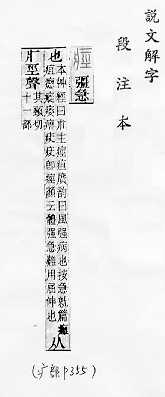 說文解字
段注本
痙 彊急
也 本艸經曰朮主痙疸廣韵曰風强病也按急就篇癰
疽瘛瘲痿痹 顏云體强急難用屈伸也 从
疒巠聲 其頸切
十一部
(疒部 p355)